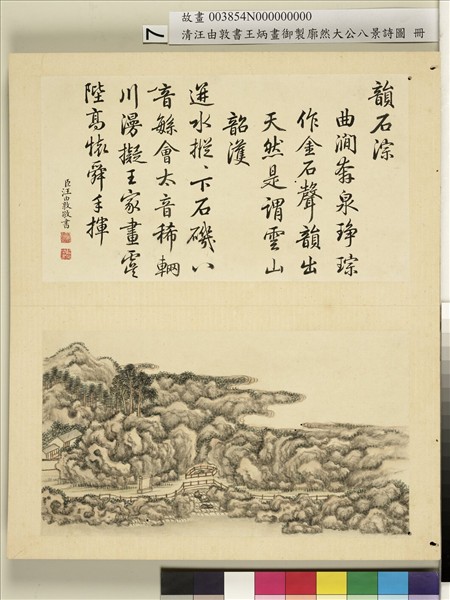 7
故畫 003854N000000000
清汪由敦書王炳畫御製廓然大公八景詩圖 冊
韻石淙
曲澗奔泉琤琮
作金石聲韻出
天然是謂雲山
韶濩
迸水摐〻下石磯八
音緐會太音稀輞
川漫擬王家畫虞
陛高懷舜手揮
臣汪由敦敬書